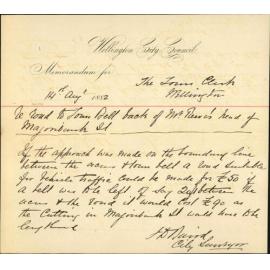 Wellington City Council
Memorandum for
The Town Clerk
14th Augt 1882 Wellington
Re Road to Town Belt back of Mr Pearce's head of
Majoribank St
If the approach was made on the boundary line
between the acres & town belt a road suitable
for vehicle traffic could be made for £50 if
a belt was to be left of say 20ft between the
acres & the road it would cost £90 as
the cutting in Majoribank St would have to be
lengthened
J D Baird
City Surveyor